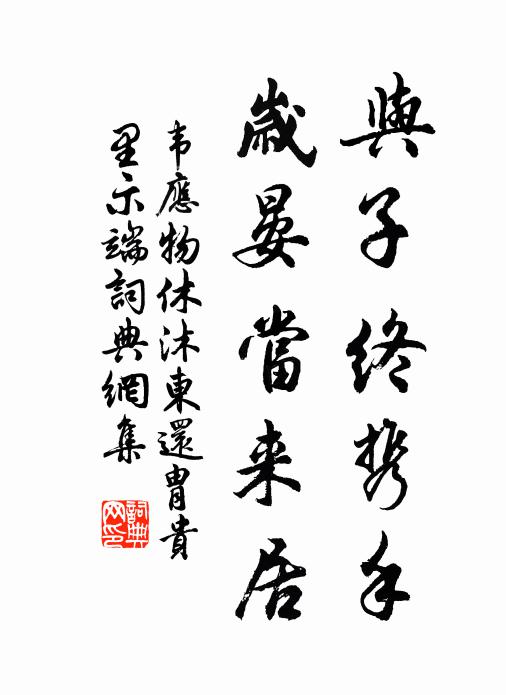 與子終携手
歲晏當来居
韦應物休沐東還胄貴
里示端詞典網集
詞典网印